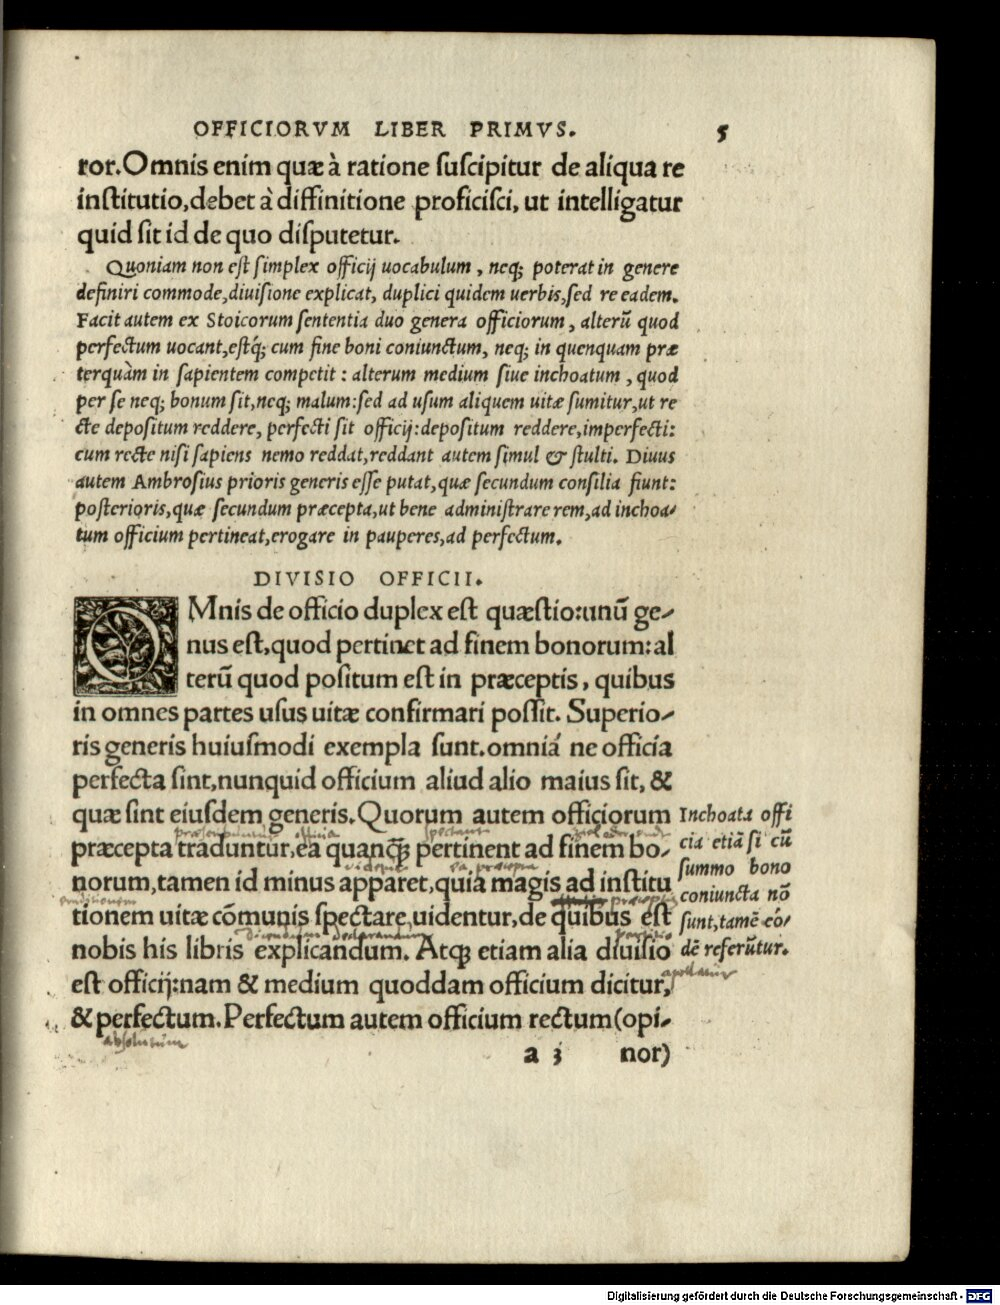 OFFICIORVM LIBER PRIMVS. 5
ror. Omnis enim quæ à ratione ſuſcipitur de aliqua re
inſtitutio, debet à diffinitione proficiſci, ut intelligatur
quid ſit id de quo diſputetur.
Quoniam non eſt ſimplex officij uocabulum, neqꝫ poterat in genere
definiri commode, diuiſione explicat, duplici quidem uerbis, ſed re eadem.
Facit autem ex Stoicorum ſententia duo genera officiorum, alterũ quod
perfectum uocant, eſtqꝫ́ cum fine boni coniunctum, neqꝫ in quenquam præ
terquàm in ſapientem competit: alterum medium ſiue inchoatum, quod
per ſe neqꝫ bonum ſit, neqꝫ malum: ſed ad uſum aliquem uitæ ſumitur, ut re
cte depoſitum reddere, perfecti ſit officij: depoſitum reddere, imperfecti:
cum recte niſi ſapiens nemo reddat, reddant autem ſimul & ſtulti. Diuus
autem Ambroſius prioris generis eſſe putat, quæ ſecundum conſilia fiunt:
poſterioris, quæ ſecundum præcepta, ut bene adminiſtrare rem, ad inchoa-
tum officium pertineat, erogare in pauperes, ad perfectum.
DIVISIO OFFICII.
OMnis de officio duplex eſt quæſtio: unũ ge-
nus eſt, quod pertinet ad finem bonorum: al
terũ quod poſitum eſt in præceptis, quibus
in omnes partes uſus uitæ confirmari poſſit. Superio-
ris generis huiuſmodi exempla ſunt. omniá ne officia
perfecta ſint, nunquid officium aliud alio maius ſit, &
quæ ſint eiuſdem generis. Quorum autem officiorum
officia
præcepta traduntur, ea quanqꝫ̃ pertinent ad finem bo-
norum, tamen id minus apparet, quia magis ad inſtitu
tionem uitæ cõmunis ſpectare uidentur, de quibus eſt
declarandum
nobis his libris explicandum. Atqꝫ etiam alia diuiſio
eſt officij: nam & medium quoddam officium dicitur,
appellatur
& perfectum. Perfectum autem officium rectum (opi-
absolutum
a 3 nor)
Inchoata offi
cia etiã ſi cũ
ſummo bono
coniuncta nõ
ſunt, tamẽ eó-
dẽ referũtur.
Digitalisierung gefördert durch die Deutsche Forschungsgemeinschaft - DFG